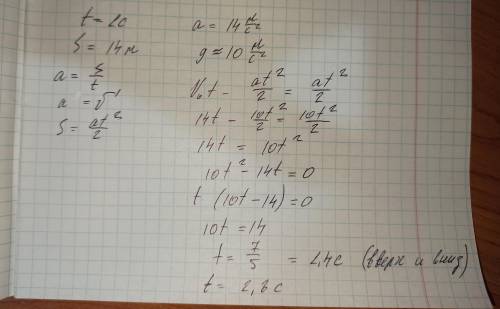 t = 2c
S = 14м
a = S/t
a = √'
S = at²/2
a = 14 м/c²
g ≈ 10 м/c²
V₀t - at²/2 = at²/2
14t - 10t²/2 = 10t²/2
14t = 10t²
10t² - 14t = 0
t (10t - 14) = 0
10t = 14
t = 7/5 = 1,4c (вверх и вниз)
t = 2,8c